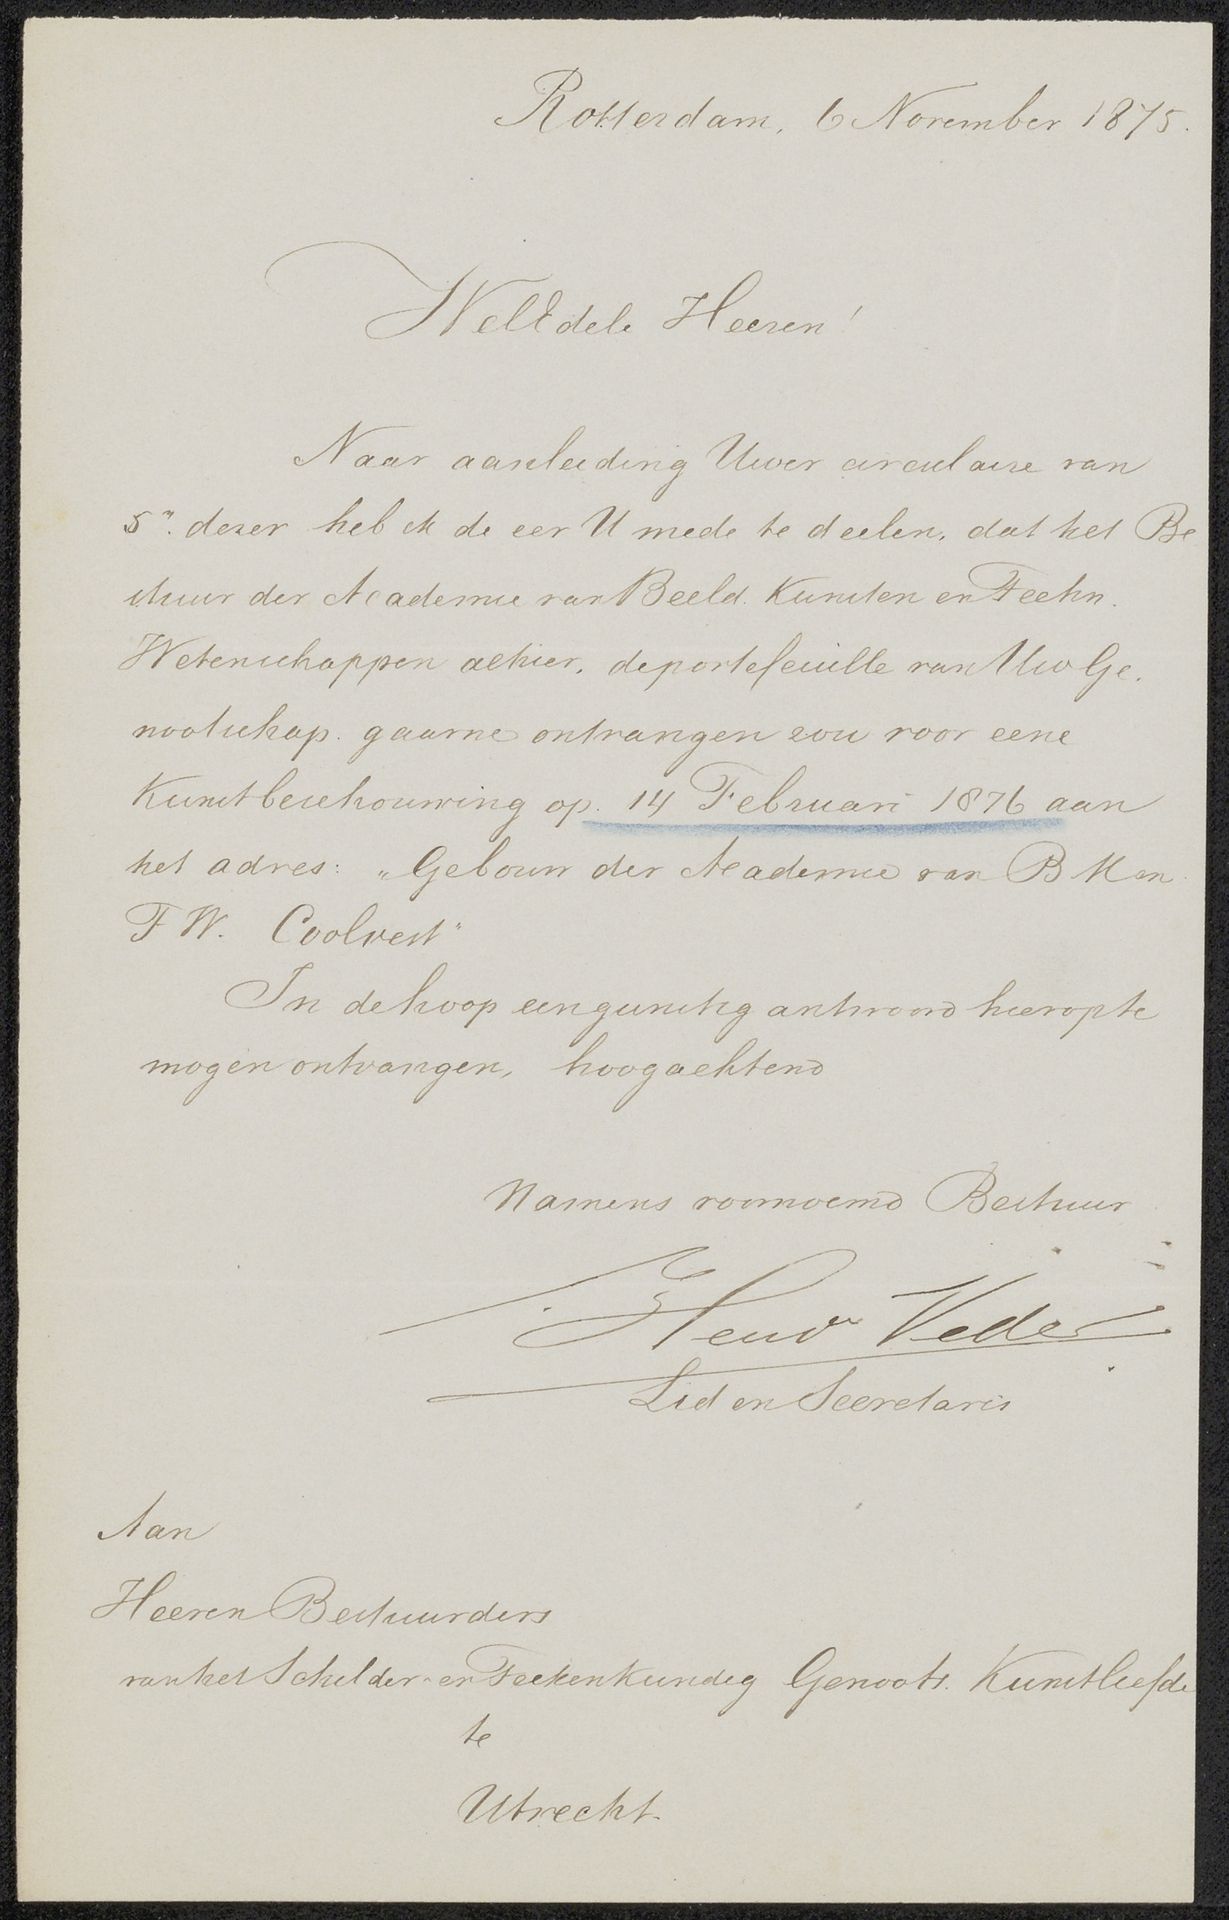 Rotterdam, 6 November 1875.
WelEdele Heeren!
Naar aanleiding Uwer circulaire van
5n. dezer heb ik de eer U mede te deelen, dat het Be
stuur der Academie van Beeld. Kunsten en Techn.
Wetenschappen alhier, de portefeuille van Uw Ge.
nootschap. gaarne ontvangen zou voor eene
Kunstbeschouwing op. 14 Februari 1876 aan
het adres: „Gebouw der Academie van B K en
T W. Coolvest"
In de hoop een gunstig antwoord hierop te
mogen ontvangen, hoogachtend
Namens voornoemd Bestuur
Hendr Veder
Lid en Secretaris
Aan
Heeren Bestuurders
van het Schilder- en Teekenkundig Genoots. Kunstliefde
te
Utrecht.